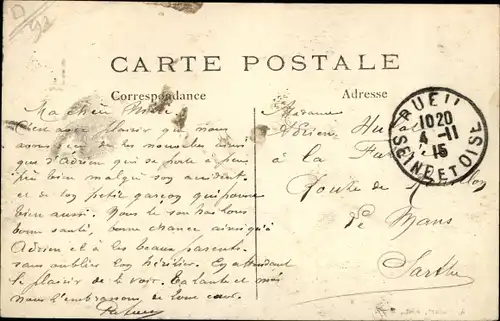 CARTE POSTALE
Correspondance
Adresse
Ma chère
C'est avec plaisir que nous
avons des nouvelles ainsi
que d'Adrien qui se porte à peu
près bien malgré son accident
et de ton petit garçon qui pousse
bien aussi. Nous te souhaitons
bonne santé, bonne chance ainsi qu'à
Adrien et à tes beaux parents
sans oublier ton héritier. En attendant
le plaisir de te voir. Ta tante et moi
nous t'embrassons de tout cœur.
Madame
Adrien
à la
Route de
Le Mans
Sarthe
RUEIL
10 20
4 -11
15
SEINE ET OISE